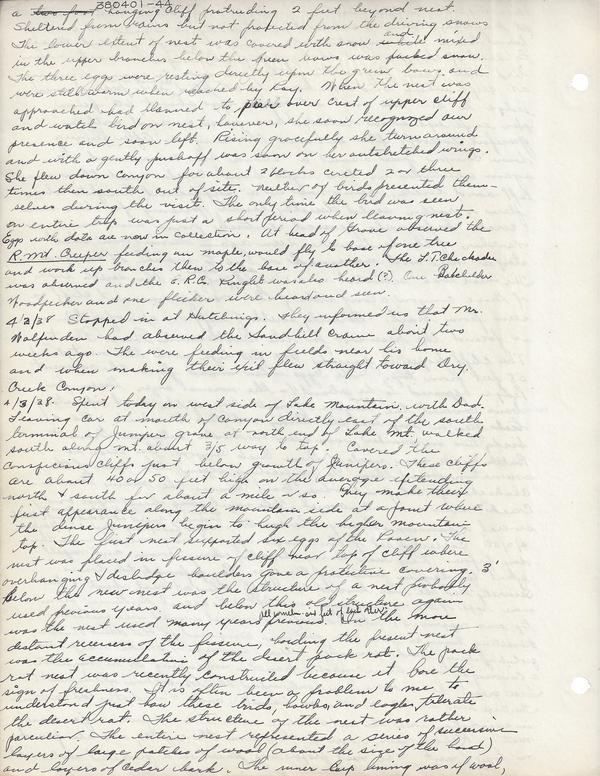 380401-44
a two foot hanging cliff protruding 2 feet beyond nest.
Sheltered from rains but not protected from the driving snows
The lower extent of nest was covered with snow and mixed
in the upper branches below the green bows was packed snow.
The three eggs were resting directly upon the green bows and
were still warm when reached by Kay. When the nest was
approached had planned to peer over crest of upper cliff
and watch bird on nest, however, she soon recognized our
presence and soon left. Rising gracefully she turn around
and with a gently pushoff was soon on her outstretched wings.
She flew down canyon for about 2 blocks circled 2 or three
times then south out of site. neither of birds presented them-
selves during the visit. The only time the bird was seen
on entire trip was just a short period when leaving nest.
Eggs with data are now in collection. At head of Grove observed the
R. Mt. Creeper feeding on maple, would fly to base of one tree
and work up branches then to the base of another. The L.T. Chickadee
was observed and the G.R.C. Kinglet was also heard (?). One Batchelder
Woodpecker and one flicker were heard and seen.
4/2/38 Stopped in at Hutchings. They informed us that Mr.
had observed the Sandhill Crane about two
weeks ago. The were feeding in fields near his home
and when making their exit flew straight toward Dry
Creek Canyon.
4/3/38. Spent today on west side of Lake Mountain, with Dad.
Leaving car at mouth of canyon directly east of the south
terminal of Juniper grove at north end of Lake Mt. walked
south along mt. about 3/5 way to top. Covered the
conspicious cliffs just below growth of Junipers. These cliffs
are about 40 or 50 feet high on the average extending
north & south for about a mile or so. They make their
first appearance along the mountain side at a point where
the dense Junipers begin to hugh the higher mountain
top. The first nest supported six eggs of the Raven. The
nest was placed in fissure of cliff near top of cliff where
overhanging & dislodge boulders gave a protective covering. 3'
below the new nest was the structure of a nest probably
used pervious years, and below this old structure again
was the nest used many years previous. In the more
distant recesses of the fissure, holding the present nest
was the accumulation of the desert pack rat. The pack
rat nest was recently constructed because it bore the
sign of freshness. It is often been a problem to me to
understand just how these birds, hawks, and eagles tolerate
the desert rat. The structure of the nest was rather
perculian. The entire nest represented a series of successive
layers of large patches of wool (about the size of the hand)
and layers of cedar bark. The inner cup lining was of wool,